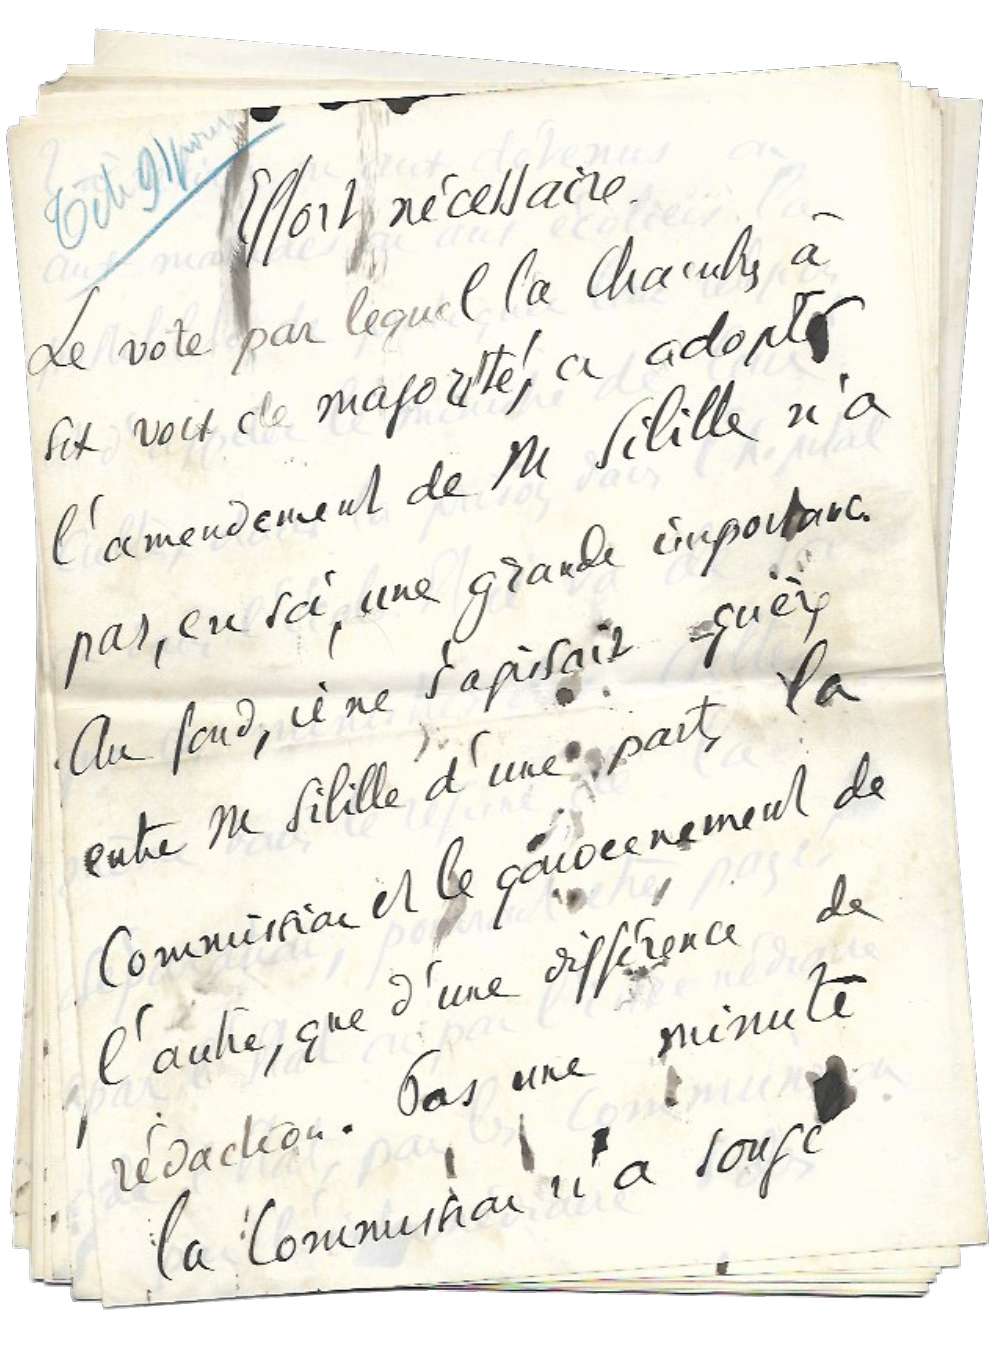 Effort nécessaire.
Le vote par lequel la Chambre à
six voix de majorité, a adopté
l'amendement de M Sibille n'a
pas, en soi, une grande importance.
Au fond, il ne s'agissait guère
entre M Sibille d'une part, la
Commission et le gouvernement de
l'autre, que d'une différence de
rédaction. Pas une minute
la Commission n'a songé